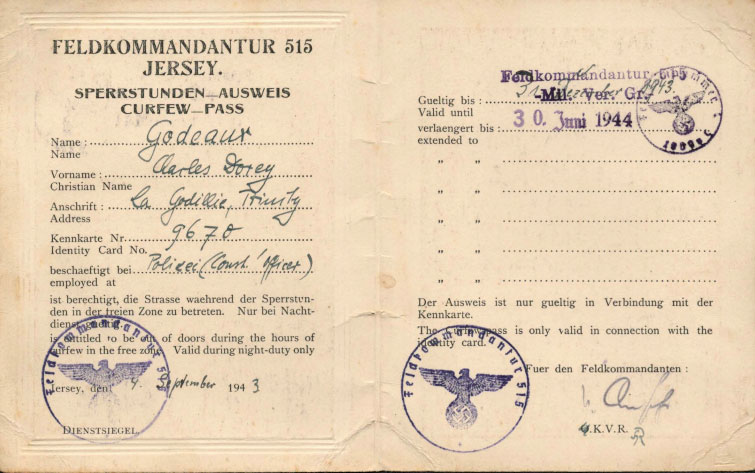 FELDKOMMANDANTUR 515
JERSEY.
SPERRSTUNDEN—AUSWEIS
CURFEW—PASS
Name : Godeaux
Name
Vorname : Charles Dorey
Christian Name
Anschrift : La Godillie, Trinity
Address
Kennkarte Nr. 9670
Identity Card No.
beschaeftigt bei Polizei (Const. Officer)
employed at
ist berechtigt, die Strasse waehrend der Sperrstun-
den in der freien Zone zu betreten. Nur bei Nacht-
dienst gueltig.
is entitled to be out of doors during the hours of
curfew in the free zone. Valid during night-duty only
Feldkommandantur 515
Jersey, den 4. September 1943
DIENSTSIEGEL.
Feldkommandantur 515
Mil. Ver. Gr.
Gueltig bis : 31. Dezember 1943
Valid until
verlaengert bis : 30. Juni 1944
extended to
" "
" "
" "
" "
" "
Der Ausweis ist nur gueltig in Verbindung mit der
Kennkarte.
The curfew pass is only valid in connection with the
identity card.
Feldkommandantur 515
Fuer den Feldkommandanten :
K.V.R.